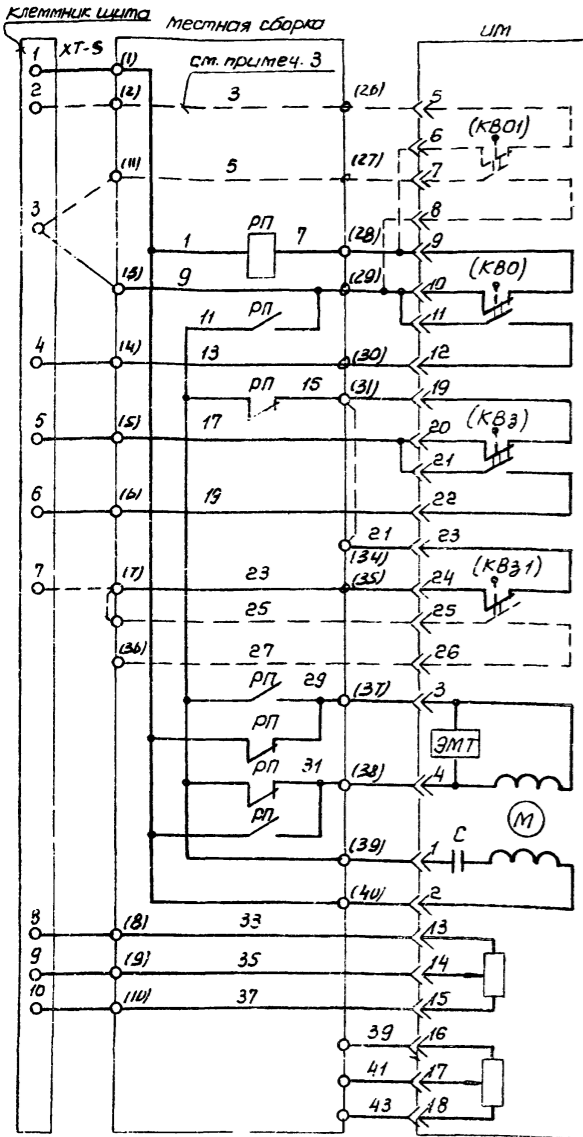 клеммник щита
местная сборка
им
1 XT-S (1)
см. примеч. 3
2 (2) 3 (26) 5
6 (КВО1)
(11) 5 (27) 7
3 8
1 РП 7 (28) 9
(3) 9 (29) 10 (КВО)
11 РП 11
4 (4) 13 (30) 12
РП 15 (31) 19
5 (5) 17 20 (КВЗ)
21
6 (6) 19 22
21 (34) 23
7 (7) 23 (35) 24 (КВЗ1)
25 25
(36) 27 26
РП 29 (37) 3
РП ЭМТ
РП 31 (38) 4
РП М
(39) 1 С
(40) 2
8 (8) 33 13
9 (9) 35 14
10 (10) 37 15
39 16
41 17
43 18